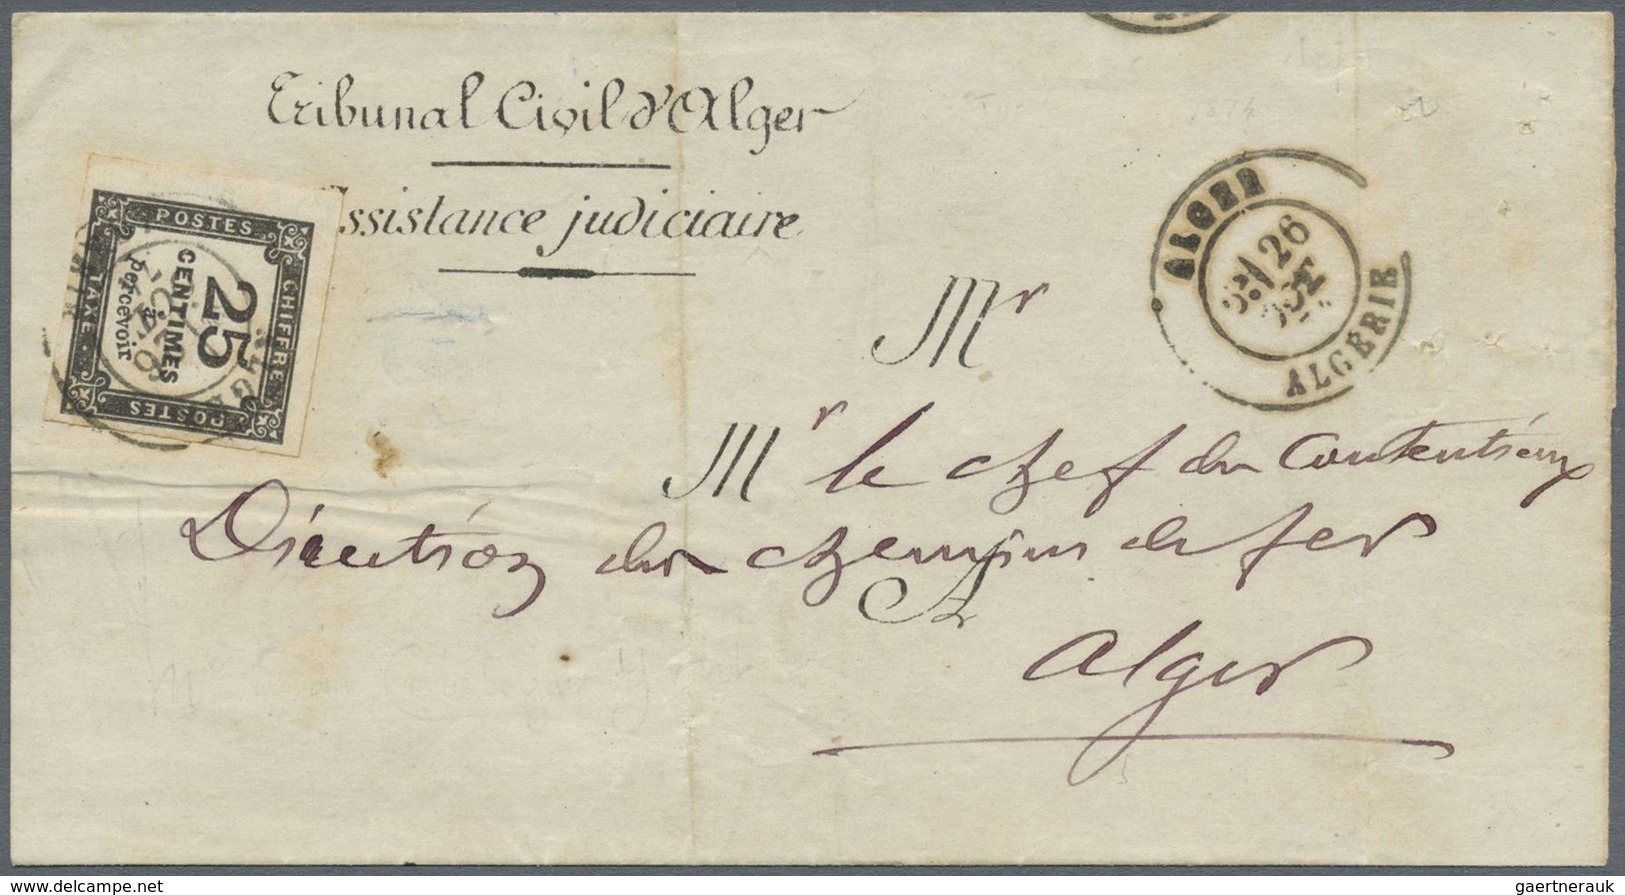 Tribunal Civil d'Alger
Assistance judiciaire
POSTES
CHIFFRE
TAXE
POSTES
25
CENTIMES
à
percevoir
ALGER
26
ALGÉRIE
Mr
Mr le chef du Contentieux
Direction des chemins de fer
A
Alger
www.delcampe.net
gaertnerauk